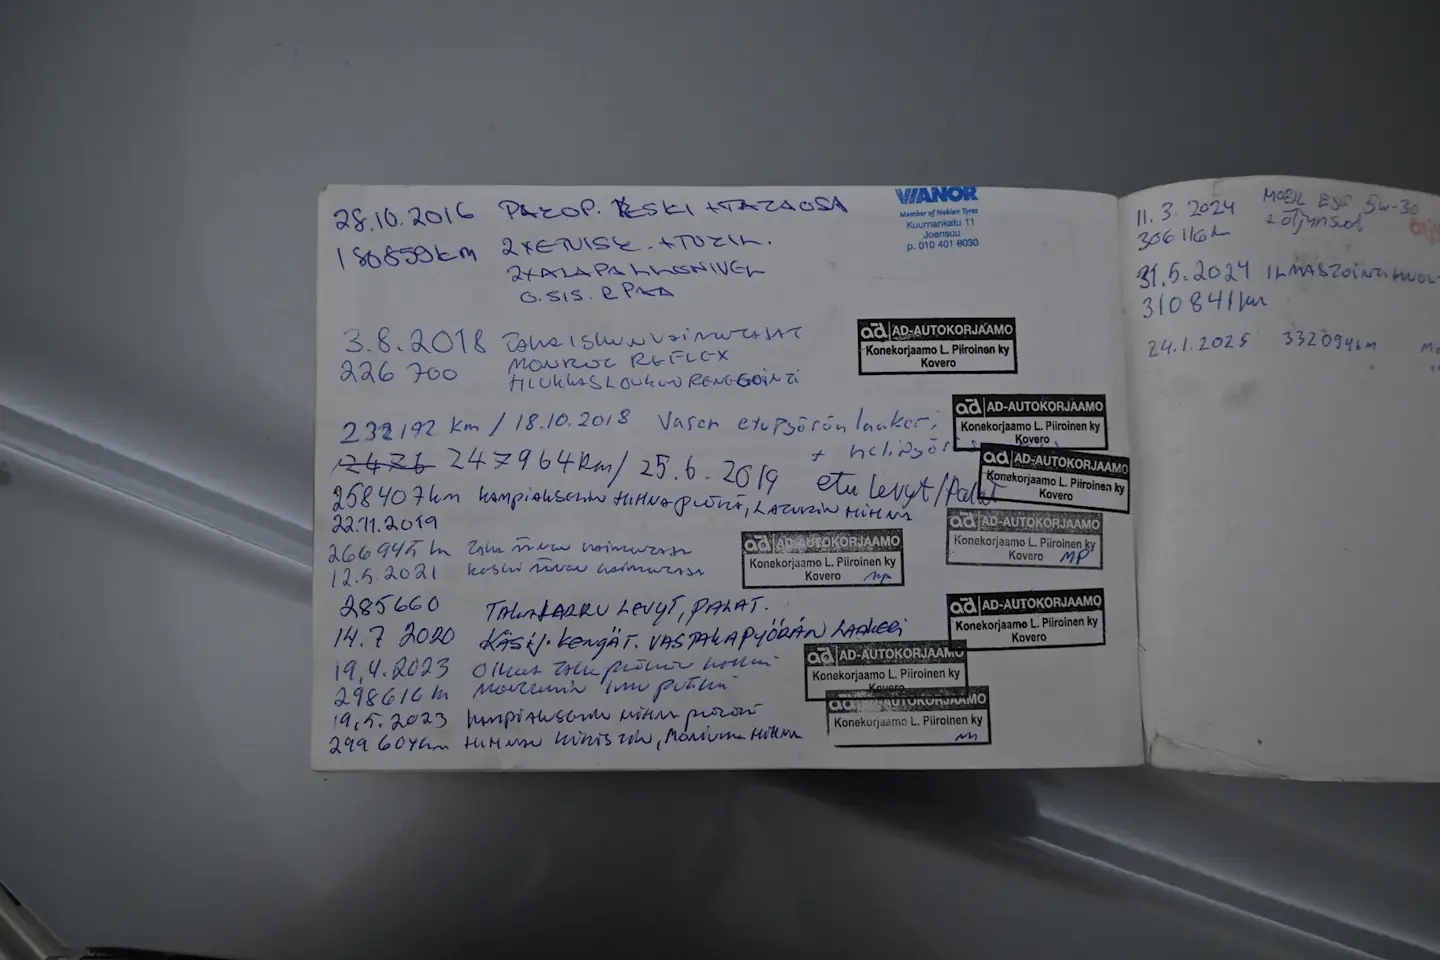 28.10.2016 PAKOP. KESKI +TAKAOSA
180859km 2XETUISK. +TUKIL.
2XALAPALLONIVEL
O.SIS. R PÄÄ
VIANOR
Member of Nokian Tyres
Kuurnankatu 11
Joensuu
p. 010 401 8030
3.8.2018 TAKAISKUNVAIMENTIMET
226 700 MONROE REFLEX
AD-AUTOKORJAAMO
Konekorjaamo L. Piiroinen ky
Kovero
232192 km / 18.10.2018 Vasen etupyörän laakeri
AD-AUTOKORJAAMO
Konekorjaamo L. Piiroinen ky
Kovero
247964km / 25.6.2019 etu levyt/palat
AD-AUTOKORJAAMO
Konekorjaamo L. Piiroinen ky
Kovero
258407km KAMPIAKSELIN HIHNAPYÖRÄ, LATURIN HIHNA
22.11.2019
AD-AUTOKORJAAMO
Konekorjaamo L. Piiroinen ky
Kovero MP
266945 km
12.5.2021
AD-AUTOKORJAAMO
Konekorjaamo L. Piiroinen ky
Kovero MP
285660 TAKAJARRU LEVYT, PALAT.
14.7 2020 KÄSIJ. KENGÄT. VASTAKAPYÖRÄN LAAKERI
AD-AUTOKORJAAMO
Konekorjaamo L. Piiroinen ky
Kovero
19.4.2023 Oikea
298616 km
AD-AUTOKORJAAMO
Konekorjaamo L. Piiroinen ky
Kovero
19.5.2023 KAMPIAKSELIN HIHNAPYÖRÄ
299604km HIHNAN KIRISTIN, MONIURA HIHNA
AD-AUTOKORJAAMO
Konekorjaamo L. Piiroinen ky
11.3.2024 MOBIL ESP 5W-30
30611 km + öljynsuod
31.5.2024 ILMASTOINTIHUOL
310841km
24.1.2025 332094km